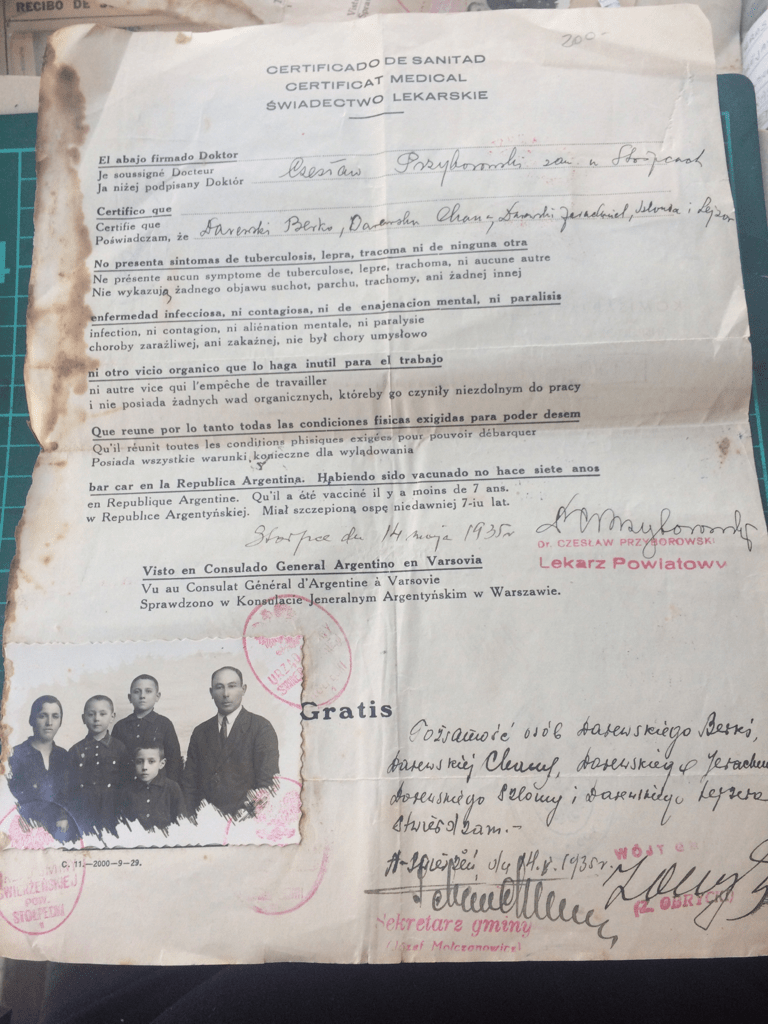 RECIBO DE
200-
CERTIFICADO DE SANITAD
CERTIFICAT MEDICAL
ŚWIADECTWO LEKARSKIE
El abajo firmado Doktor
Je soussigné Docteur
Ja niżej podpisany Doktór
Czesław Przyborowski zam w Stołpcach
Certifico que
Certifie que
Poświadczam, że
Darewski Berko, Darewska Chana, Darewski Jerachmiel, Szloma i Lejzor
No presenta sintomas de tuberculosis, lepra, tracoma ni de ninguna otra
Ne présente aucun symptome de tuberculose, lepre, trachoma, ni aucune autre
Nie wykazują żadnego objawu suchot, parchu, trachomy, ani żadnej innej
enfermedad infecciosa, ni contagiosa, ni de enajenacion mental, ni paralisis
infection, ni contagion, ni aliénation mentale, ni paralysie
choroby zaraźliwej, ani zakaźnej, nie był chory umysłowo
ni otro vicio organico que lo haga inutil para el trabajo
ni autre vice qui l'empêche de travailler
i nie posiada żadnych wad organicznych, któreby go czyniły niezdolnym do pracy
Que reune por lo tanto todas las condiciones fisicas exigidas para poder desem
Qu'il réunit toutes les conditions phisiques exigées pour pouvoir débarquer
Posiada wszystkie warunki konieczne dla wylądowania
bar car en la Republica Argentina. Habiendo sido vacunado no hace siete anos
en Republique Argentine. Qu'il a été vacciné il y a moins de 7 ans.
w Republice Argentyńskiej. Miał szczepioną ospę niedawniej 7-iu lat.
Stołpce dn 14 maja 1935r
Dr. CZESŁAW PRZYBOROWSKI
Lekarz Powiatowy
Visto en Consulado General Argentino en Varsovia
Vu au Consulat Général d'Argentine à Varsovie
Sprawdzono w Konsulacie Jeneralnym Argentyńskim w Warszawie.
Gratis
Tożsamość osób Darewskiego Berko,
Darewskiej Chany, Darewskiego Jerachm
Darewskiego Szlomy i Darewskiego Lejzora
stwierdzam.-
14.V.1935r.
WÓJT
(Z. OBRYCKI)
Sekretarz gminy
C. 11.—2000—9—29.
POW.
STOŁPECKI